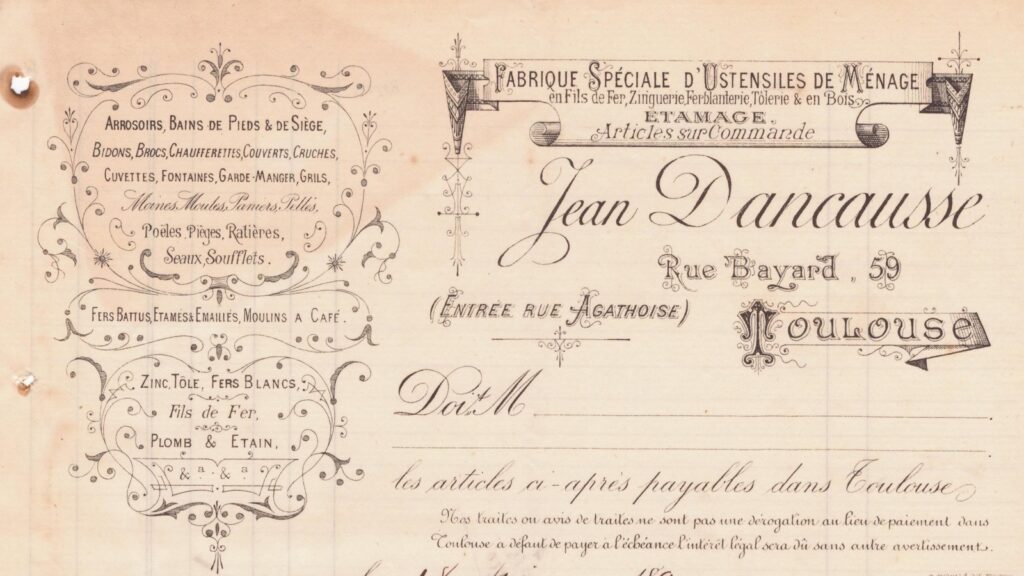 ARROSOIRS, BAINS DE PIEDS & DE SIÈGE,
BIDONS, BROCS, CHAUFFERETTES, COUVERTS, CRUCHES,
CUVETTES, FONTAINES, GARDE-MANGER, GRILS,
Moines, Moules, Paniers, Pelles,
Poëles, Pièges, Ratières,
Seaux, Soufflets.
FERS BATTUS, ETAMÉS & EMAILLÉS, MOULINS A CAFÉ.
ZINC, TÔLE, FERS BLANCS,
Fils de Fer,
PLOMB & ETAIN,
& a. & a.
FABRIQUE SPÉCIALE D'USTENSILES DE MÉNAGE
en Fils de Fer, Zinguerie, Ferblanterie, Tôlerie & en Bois
ETAMAGE,
Articles sur Commande
Jean Dancausse
Rue Bayard, 59
(ENTRÉE RUE AGATHOISE)
TOULOUSE
Doit M
les articles ci-après payables dans Toulouse
Nos traites ou avis de traites ne sont pas une dérogation au lieu de paiement dans
Toulouse a défaut de payer à l'échéance l'intérêt légal sera dû sans autre avertissement.